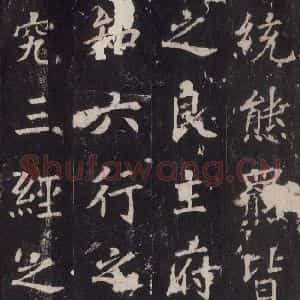 統熊羆皆
之良主府
知六行之
究三經之
Shufawang.CN